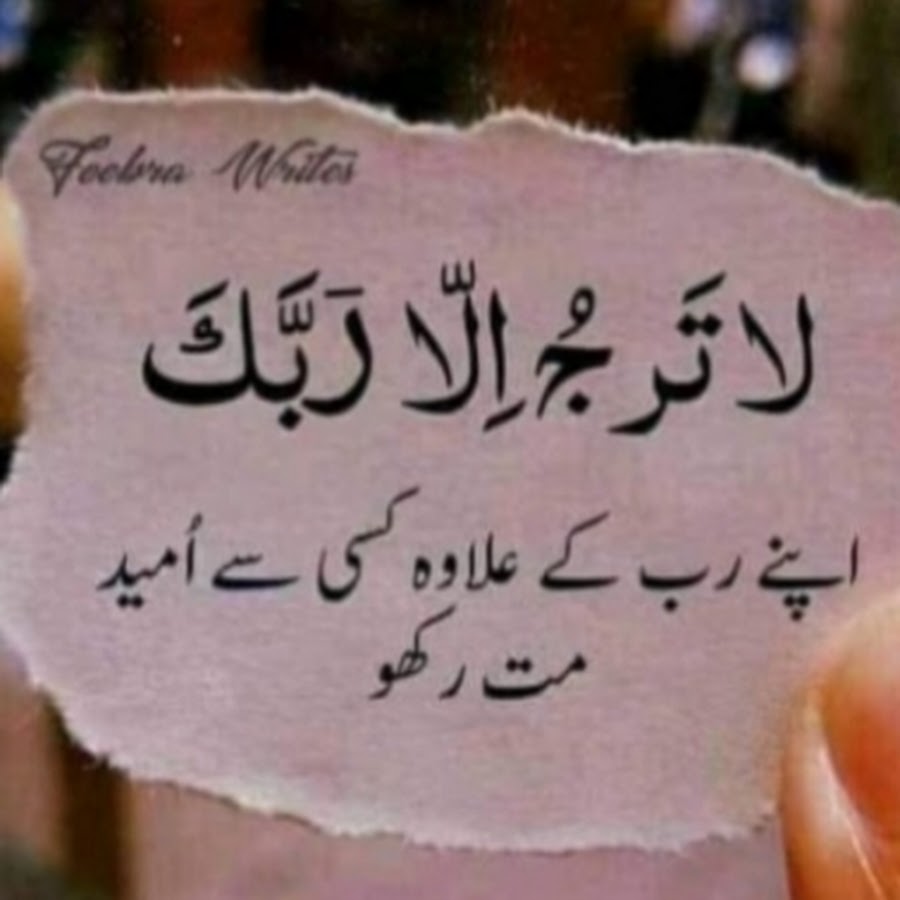 Feelsra Writes
لا تَرجُ اِلّا رَبَّكَ
اپنے رب کے علاوہ کسی سے اُمید
مت رکھو